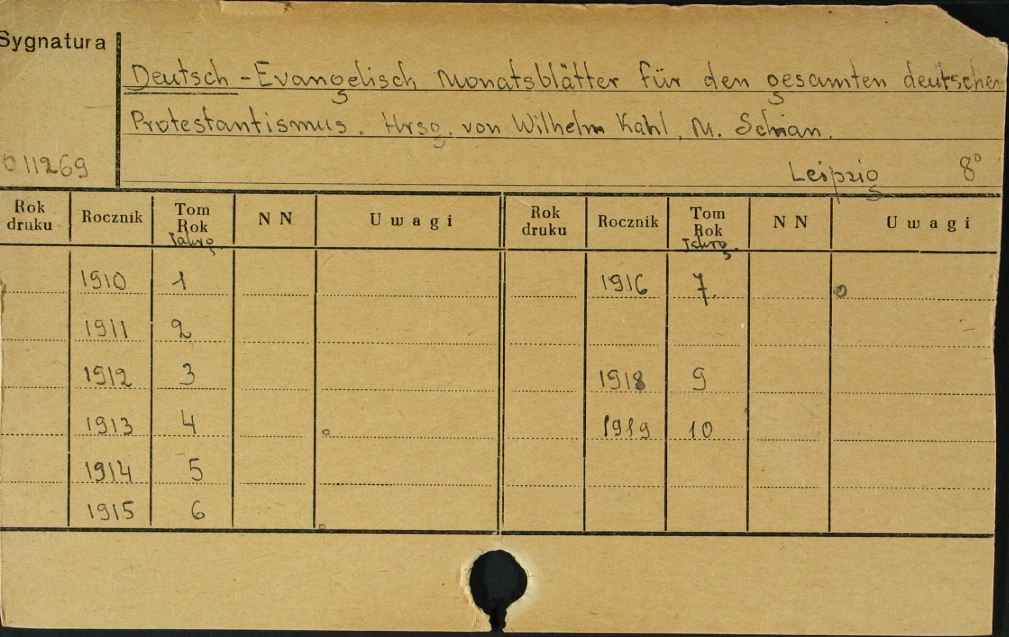 Sygnatura
Deutsch - Evangelisch Monatsblätter für den gesamten deutschen
Protestantismus. Hrsg. von Wilhelm Kahl, M. Schian.
011269
Leipzig 8°
Rok druku Rocznik Tom Rok Jahrg. NN Uwagi Rok druku Rocznik Tom Rok Jahrg. NN Uwagi
1910 1 1916 7.
1911 2
1912 3 1918 9
1913 4 1919 10
1914 5
1915 6